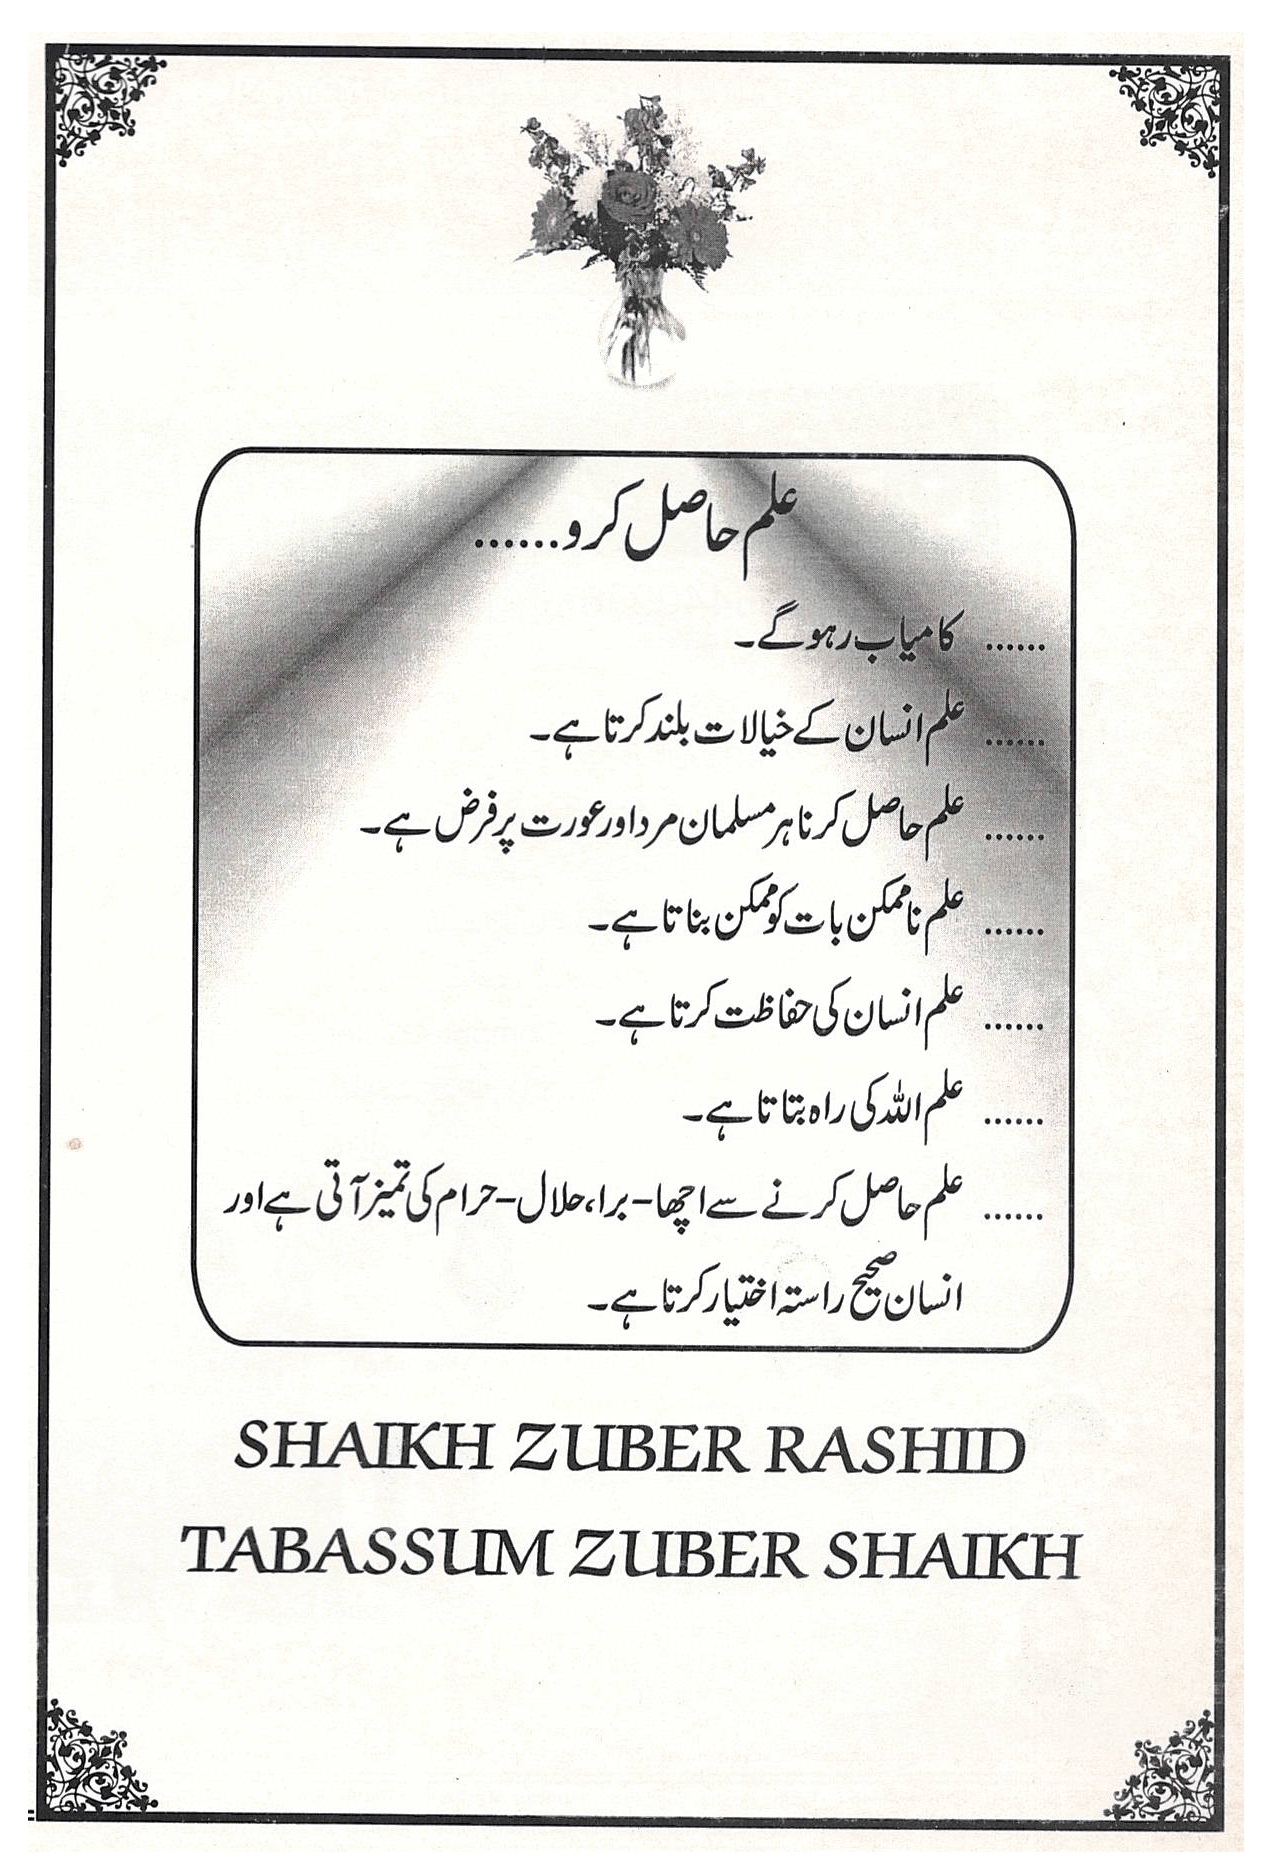 علم حاصل کرو......
...... کامیاب رہو گے۔
...... علم انسان کے خیالات بلند کرتا ہے۔
...... علم حاصل کرنا ہر مسلمان مرد اور عورت پر فرض ہے۔
...... علم ناممکن بات کو ممکن بناتا ہے۔
...... علم انسان کی حفاظت کرتا ہے۔
...... علم اللہ کی راہ بتاتا ہے۔
...... علم حاصل کرنے سے اچھا - برا، حلال - حرام کی تمیز آتی ہے اور
انسان صحیح راستہ اختیار کرتا ہے۔
SHAIKH ZUBER RASHID
TABASSUM ZUBER SHAIKH